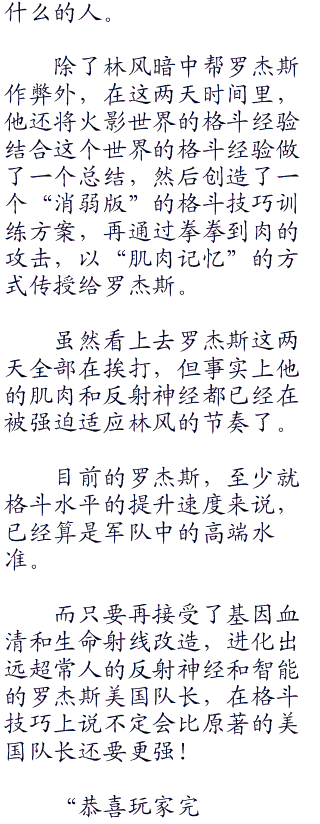 什么的人。
除了林风暗中帮罗杰斯
作弊外，在这两天时间里，
他还将火影世界的格斗经验
结合这个世界的格斗经验做
了一个总结，然后创造了一
个“消弱版”的格斗技巧训
练方案，再通过拳拳到肉的
攻击，以“肌肉记忆”的方
式传授给罗杰斯。
虽然看上去罗杰斯这两
天全部在挨打，但事实上他
的肌肉和反射神经都已经在
被强迫适应林风的节奏了。
目前的罗杰斯，至少就
格斗水平的提升速度来说，
已经算是军队中的高端水
准。
而只要再接受了基因血
清和生命射线改造，进化出
远超常人的反射神经和智能
的罗杰斯美国队长，在格斗
技巧上说不定会比原著的美
国队长还要更强！
“恭喜玩家完